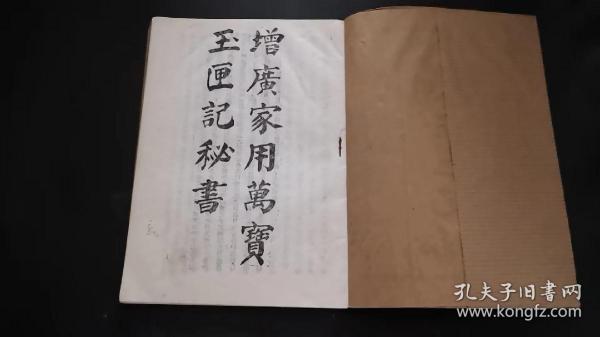 增廣家用萬寶
玉匣記秘書
孔夫子旧書网
www.kongfz.com